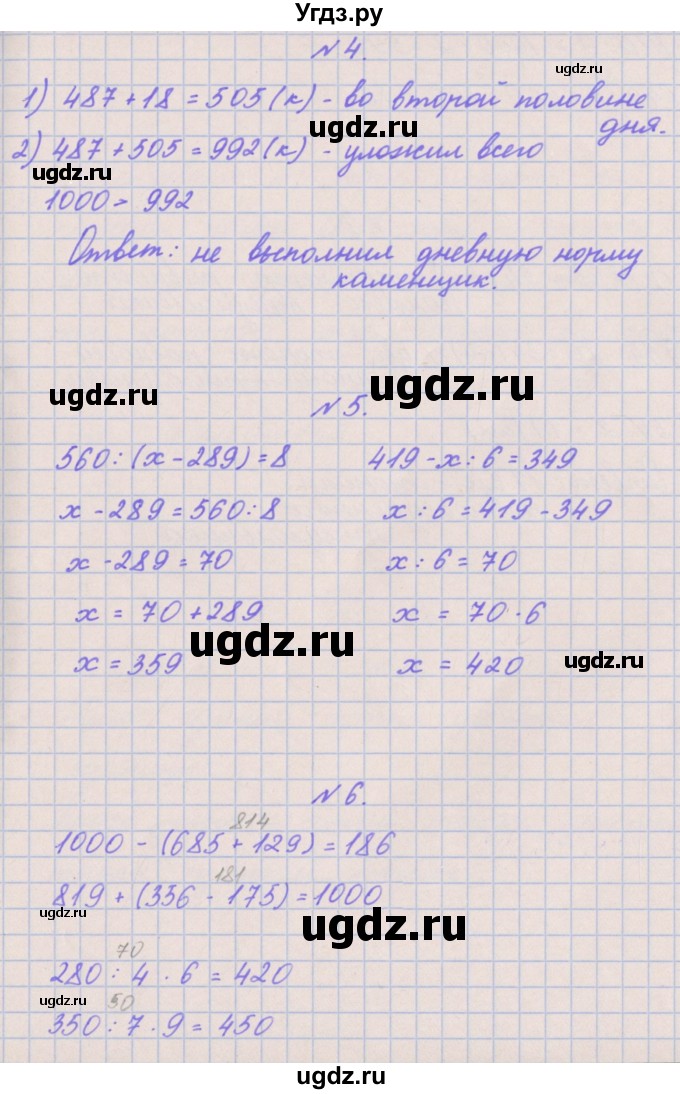 Угдз.ру
№ 4.
ugdz.ru
1) 487 + 18 = 505 (к) - во второй половине дня.
ugdz.ru
2) 487 + 505 = 992 (к) - уложил всего
ugdz.ru
1000 > 992
Ответ: не выполнил дневную норму
каменщик.
ugdz.ru
ugdz.ru
№ 5.
560 : (x - 289) = 8
x - 289 = 560 : 8
x - 289 = 70
x = 70 + 289
x = 359
419 - x : 6 = 349
x : 6 = 419 - 349
x : 6 = 70
x = 70 · 6
x = 420
ugdz.ru
ugdz.ru
№ 6.
814
1000 - (685 + 129) = 186
181
819 + (356 - 175) = 1000
ugdz.ru
ugdz.ru
70
280 : 4 · 6 = 420
ugdz.ru
50
350 : 7 · 9 = 450
ugdz.ru